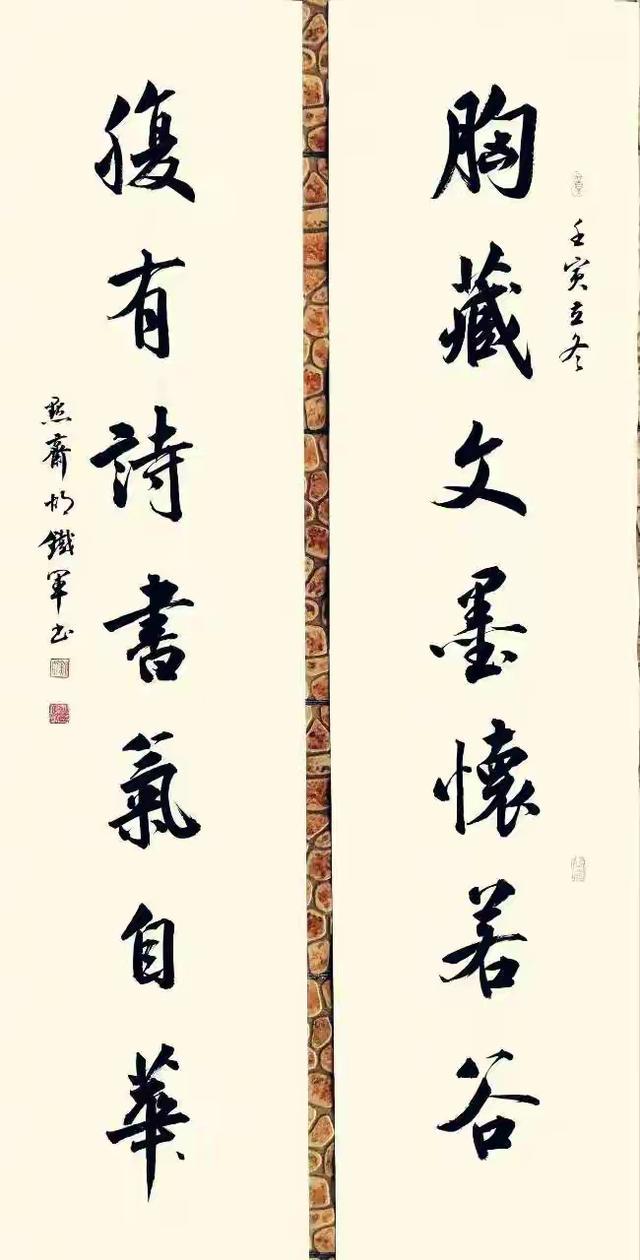 壬寅立冬
胸藏文墨懷若谷
腹有詩書氣自華
齋胡鐵軍书